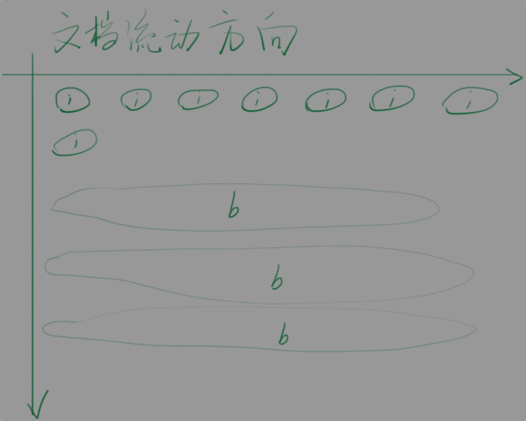 文档流动方向
i i i i i i i
i
b
b
b